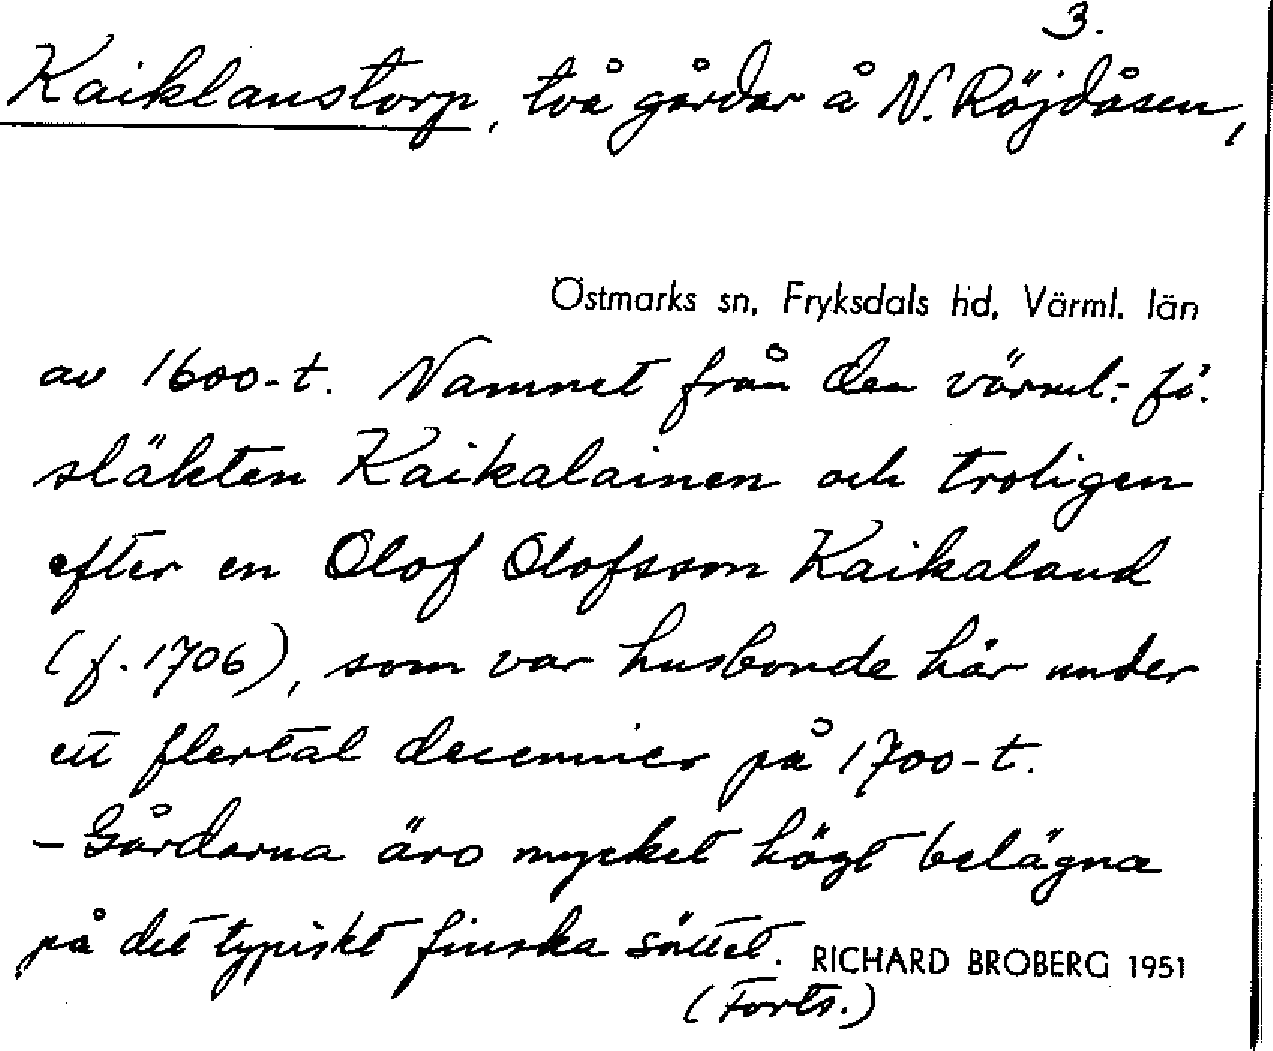 3.
Kaiklanstorp, två gårdar å N. Röjdåsen,
Östmarks sn, Fryksdals hd, Värml. län
av 1600-t. Namnet från den värml.-fi.
släkten Kaikalainen och troligen
efter en Olof Olofsson Kaikaland
(f. 1706), som var husbonde här under
ett flertal decennier på 1700-t.
- Gårdarna äro mycket högt belägna
på det typiskt finska sättet. RICHARD BROBERG 1951
(Forts.)